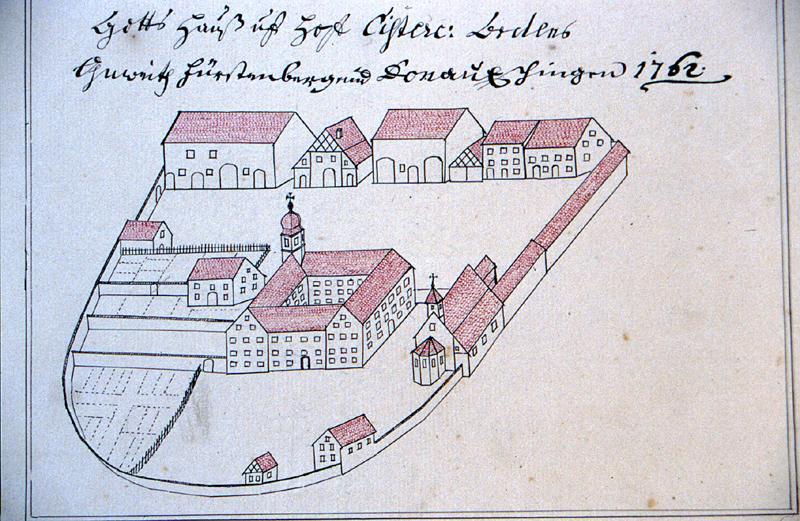 Gotts Hauß uff Hoff Cisterc: Ordens
Ohnweith Fürstenbergeund Donau Eschingen 1762.